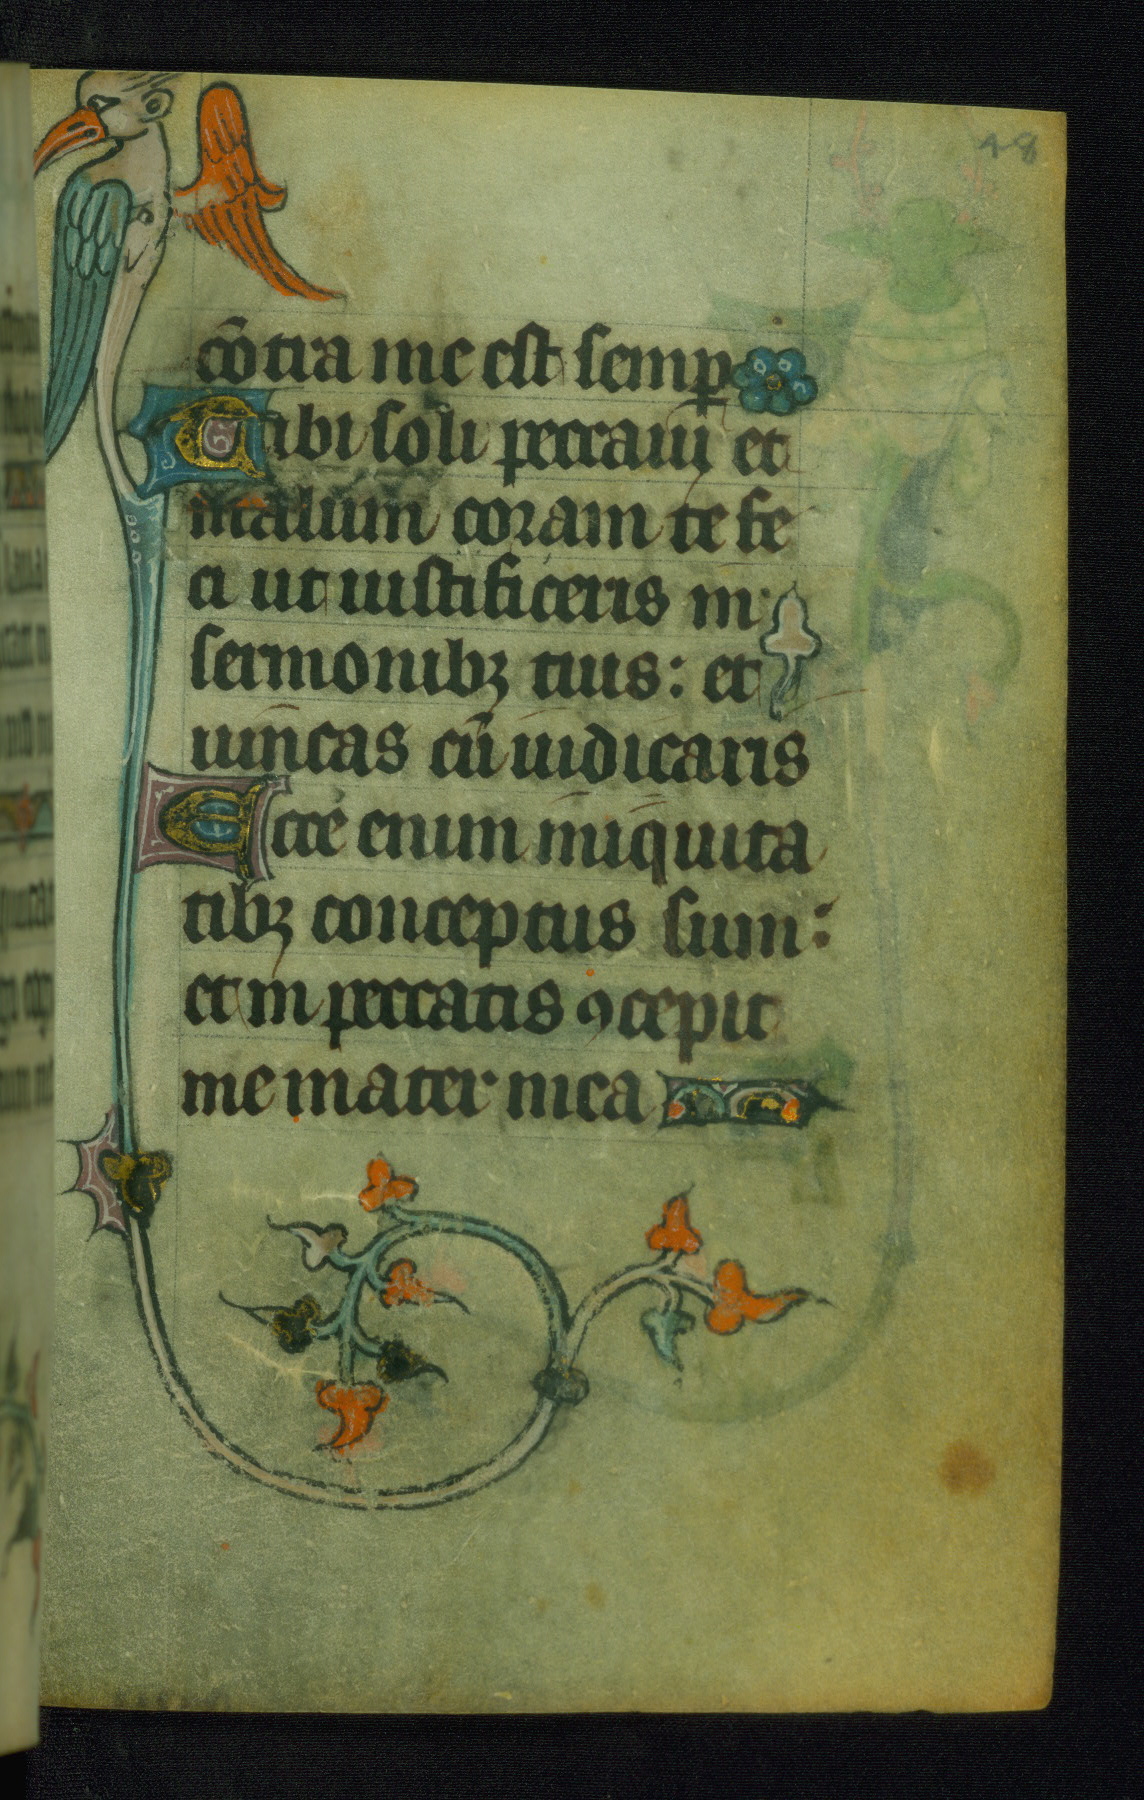 48
cōtra me est semꝑ
Tibi soli peccaui et
malum coram te fe
ci ut iustificeris in
sermonibꝫ tuis: et
uincas cū iudicaris
Ecce enim iniquita
tibꝫ conceptus sum:
et in peccatis ꝯcepit
me mater mea